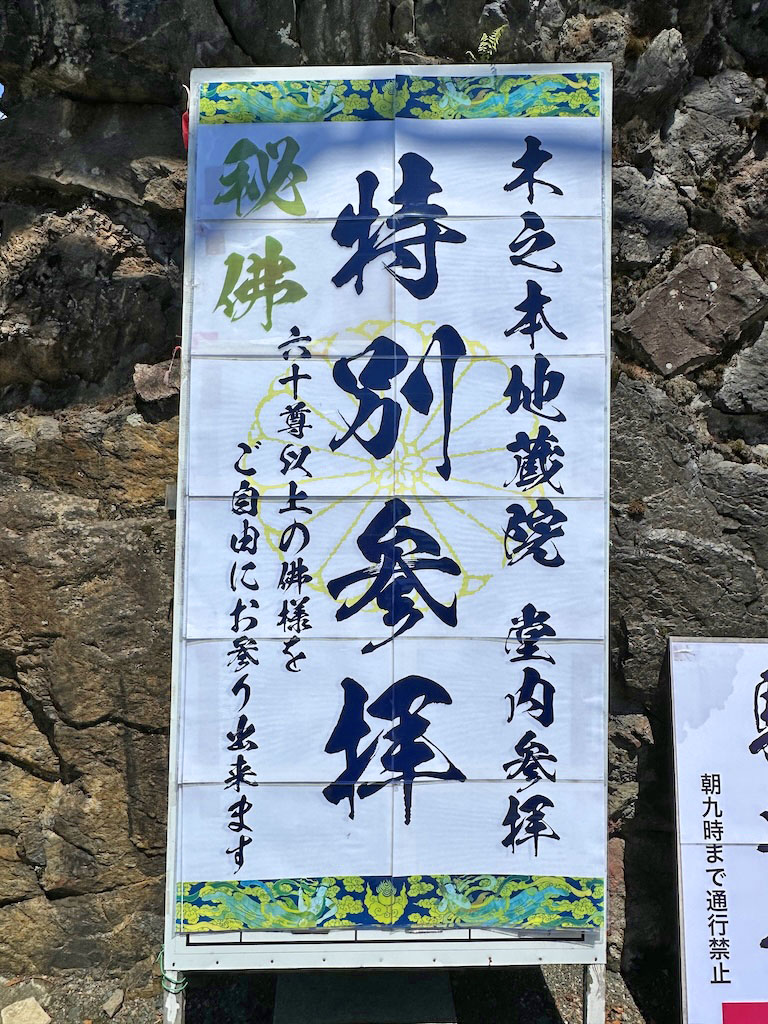 木之本地蔵院 堂内参拝
特別参拝
秘佛
六十尊以上の佛様を
ご自由にお参り出来ます
朝九時まで通行禁止